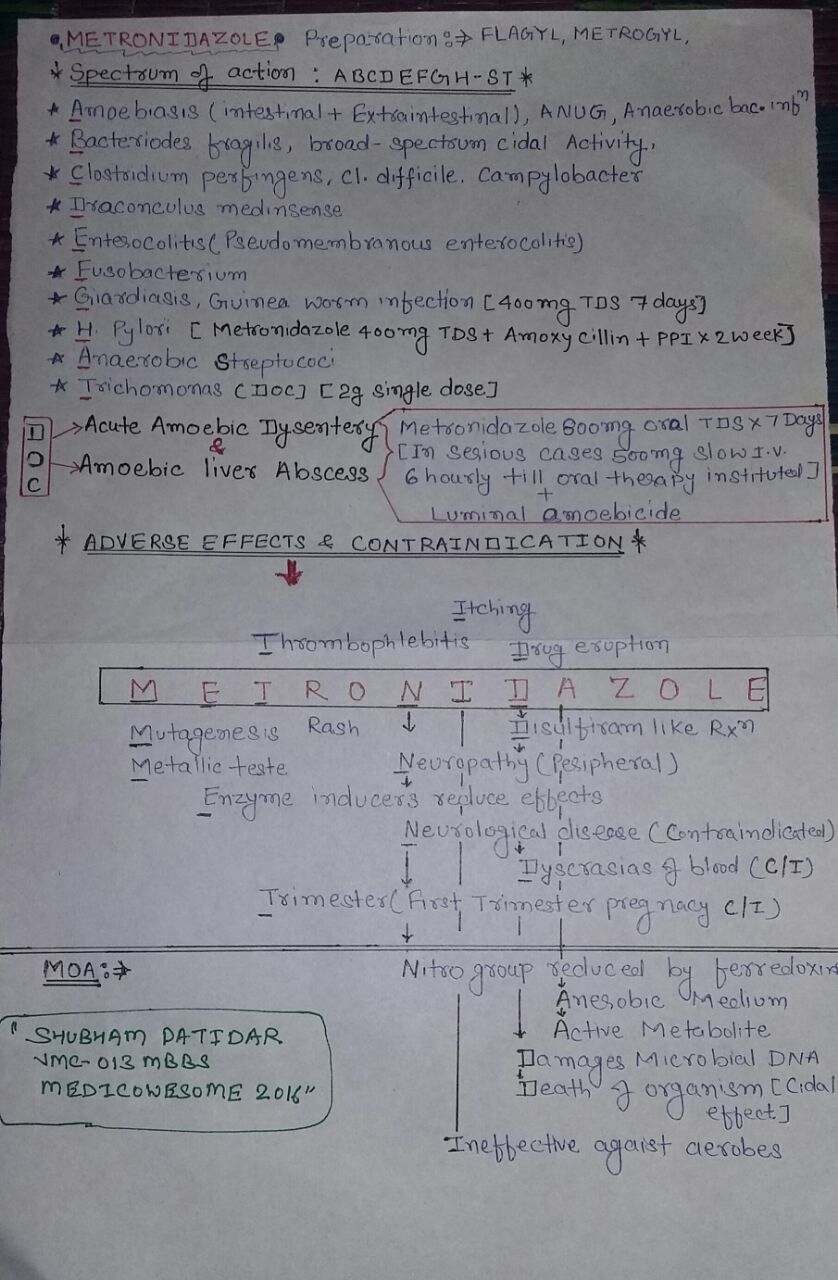 METRONIDAZOLE Preparation:→ FLAGYL, METROGYL,
* Spectrum of action : ABCDEFGH-ST *
* Amoebiasis (intestinal + Extraintestinal), ANUG, Anaerobic bac. infⁿ
* Bacteriodes fragilis, broad-spectrum cidal Activity,
* Clostridium perfingens, Cl. difficile. Campylobacter
* Draconculus medinsense
* Enterocolitis (Pseudomembranous enterocolitis)
* Fusobacterium
* Giardiasis, Guinea worm infection [400mg TDS 7 days]
* H. Pylori [Metronidazole 400mg TDS + Amoxycillin + PPI x 2 week]
* Anaerobic Streptococi
* Trichomonas (DOC) [2g single dose]
DOC → Acute Amoebic Dysentery
&
→ Amoebic liver Abscess
Metronidazole 800mg oral TDS x 7 Days
[In serious cases 500mg slow I.V.
6 hourly till oral therapy instituted]
+
Luminal amoebicide
* ADVERSE EFFECTS & CONTRAINDICATION *
Itching
Thrombophlebitis Drug eruption
METRONIDAZOLE
Mutagenesis Rash Disulfiram like Rxⁿ
Metallic teste Neuropathy (Peripheral)
Enzyme inducers reduce effects
Neurological disease (Contraindicated)
Dyscrasias of blood (C/I)
Trimester (First Trimester pregnacy C/I)
MOA:→ Nitro group reduced by ferredoxin
Anerobic Medium
Active Metabolite
Damages Microbial DNA
Death of organism [Cidal
effect]
Ineffective agaist aerobes
"SHUBHAM PATIDAR
VMC-013 MBBS
MEDICOWESOME 2016"